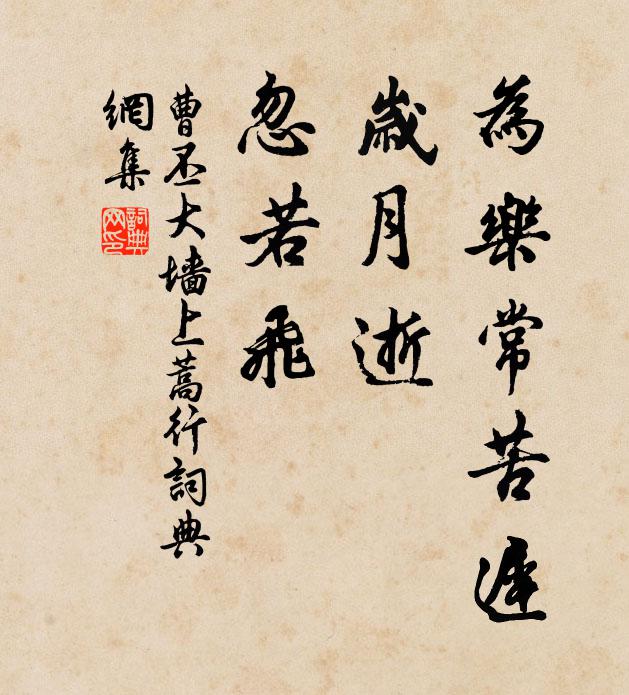 為樂常苦遲
歲月逝
忽若飛
曹丕大墻上蒿行詞典
網集
詞典
网印